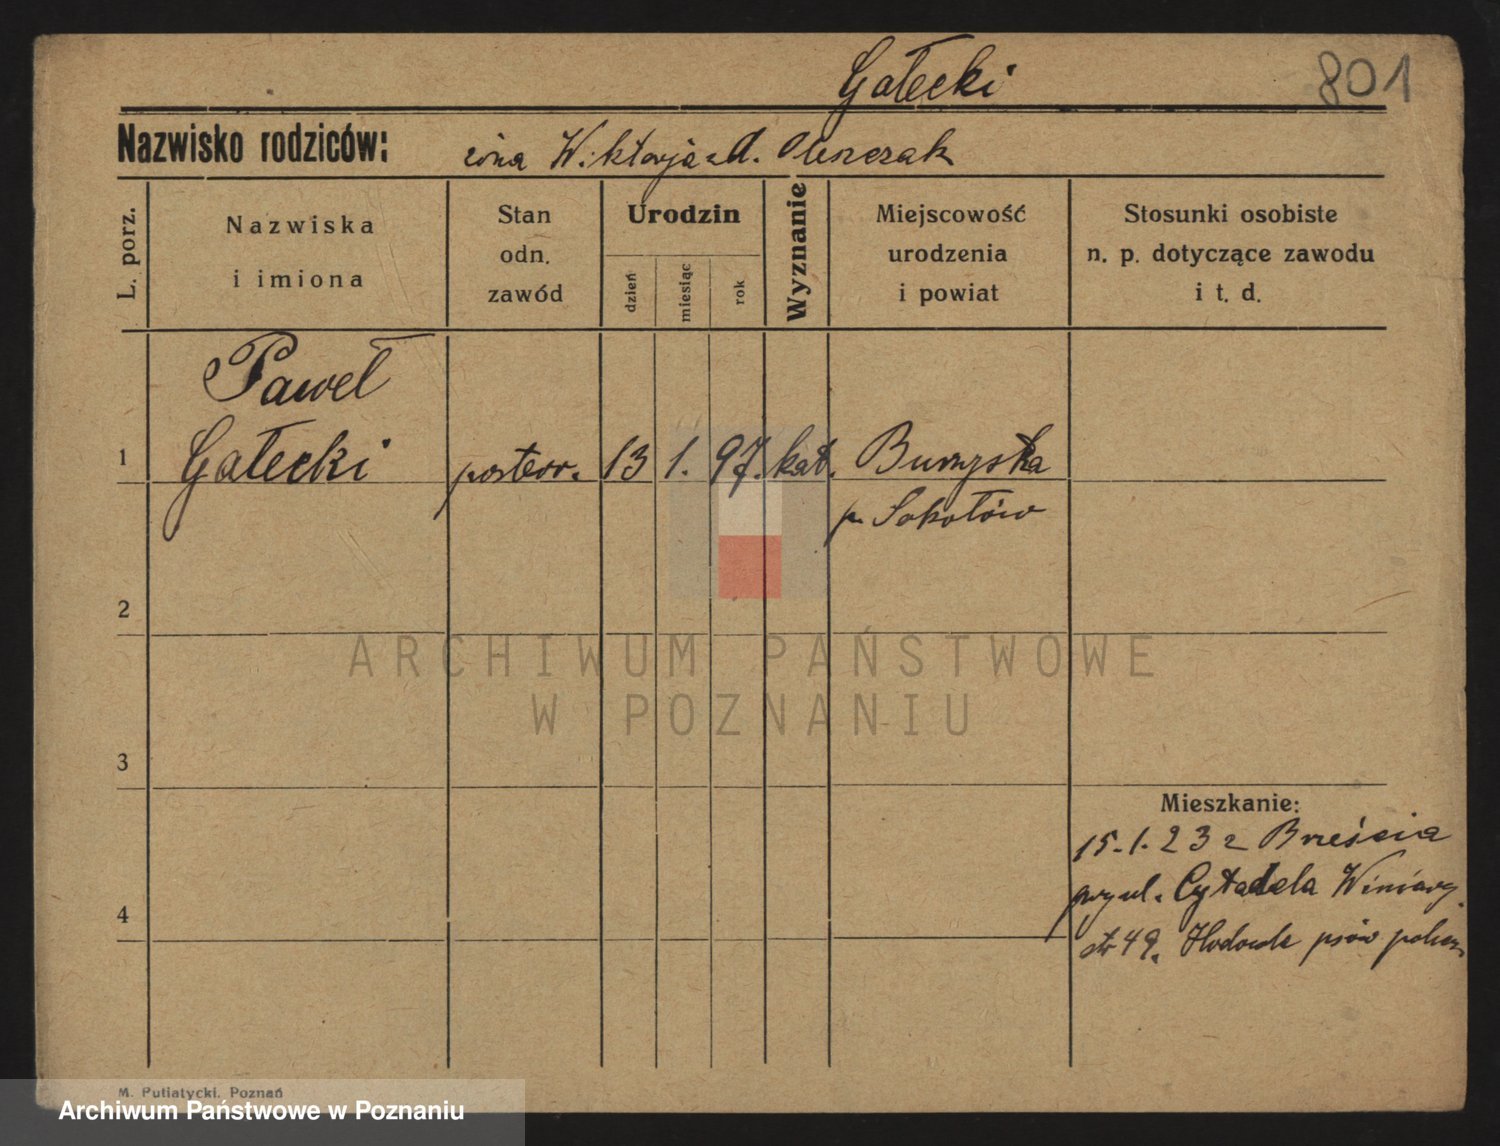 Gałecki 801
Nazwisko rodziców: żona Wiktorja z d. Olszczak
L. porz.
Nazwiska i imiona
Stan odn. zawód
Urodzin
dzień
miesiąc
rok
Wyznanie
Miejscowość urodzenia i powiat
Stosunki osobiste n. p. dotyczące zawodu i t. d.
Paweł
1 Gałecki poster. 13 1. 97. kat. Buczyska
p. Sokołów
2
ARCHIWUM PAŃSTWOWE
W POZNANIU
3
Mieszkanie:
15.1.23 z Brześcia
Cytadela Winiary
4
49. Hodowla psów
M. Putiatycki, Poznań
Archiwum Państwowe w Poznaniu